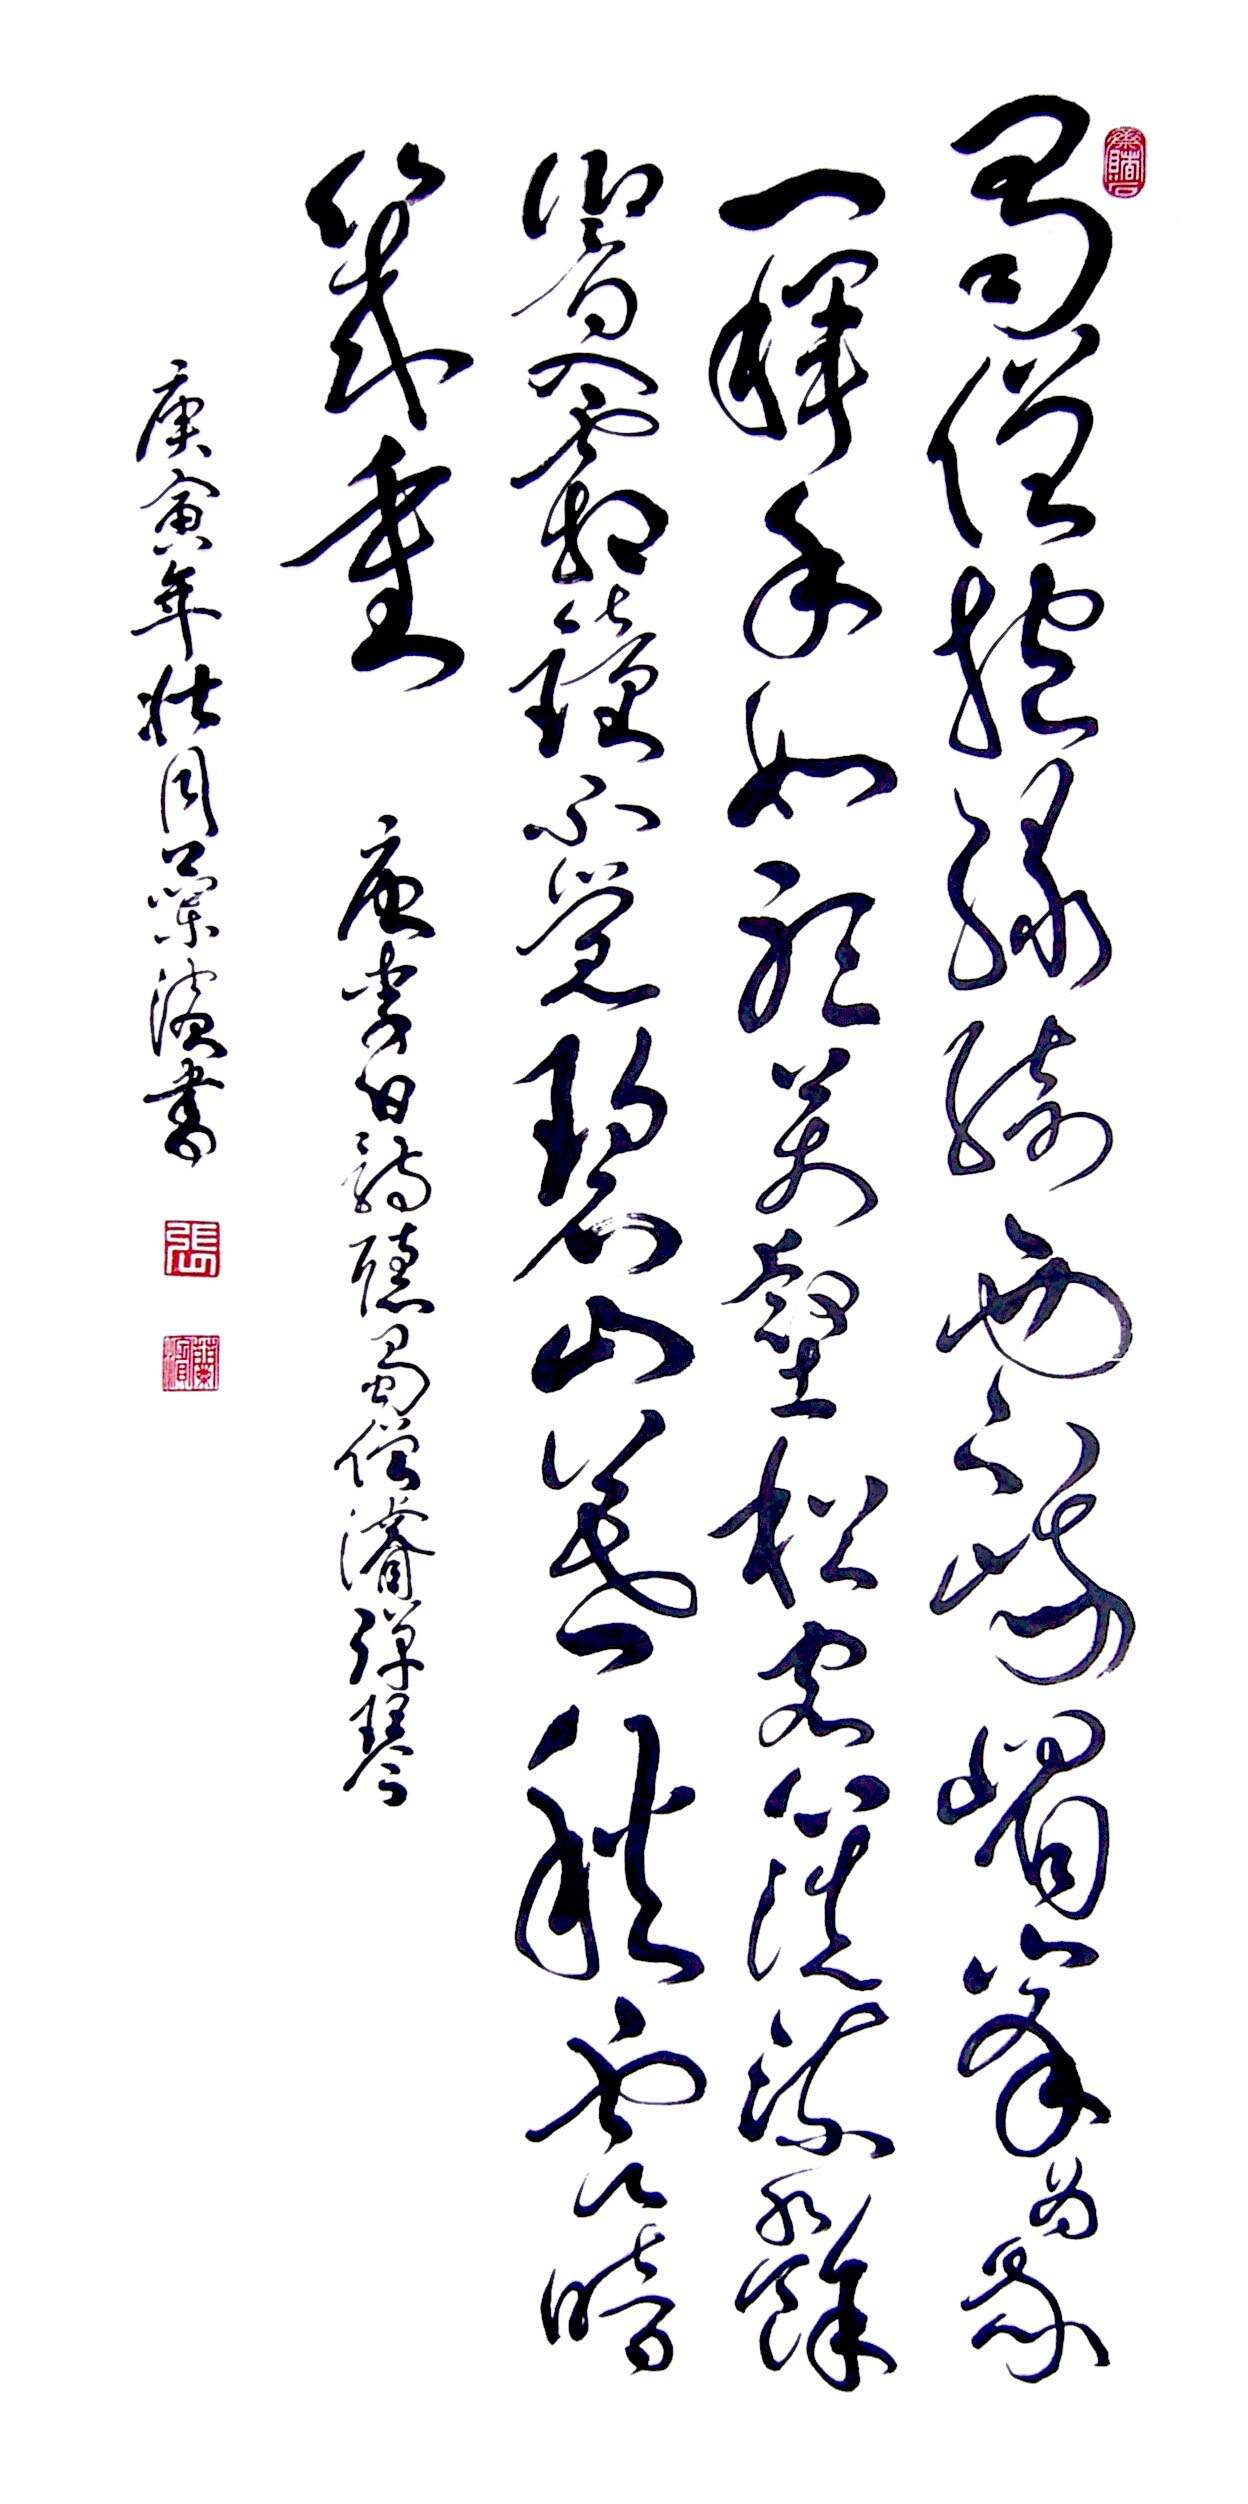 蜀僧抱綠綺西下峨嵋峰為我
一揮手如聽萬壑松客心洗流水餘
響入霜鐘不覺碧山暮秋雲暗
幾重 唐李白詩聽蜀僧濬彈琴
庚寅年壯月榮濱書
張
榮濱